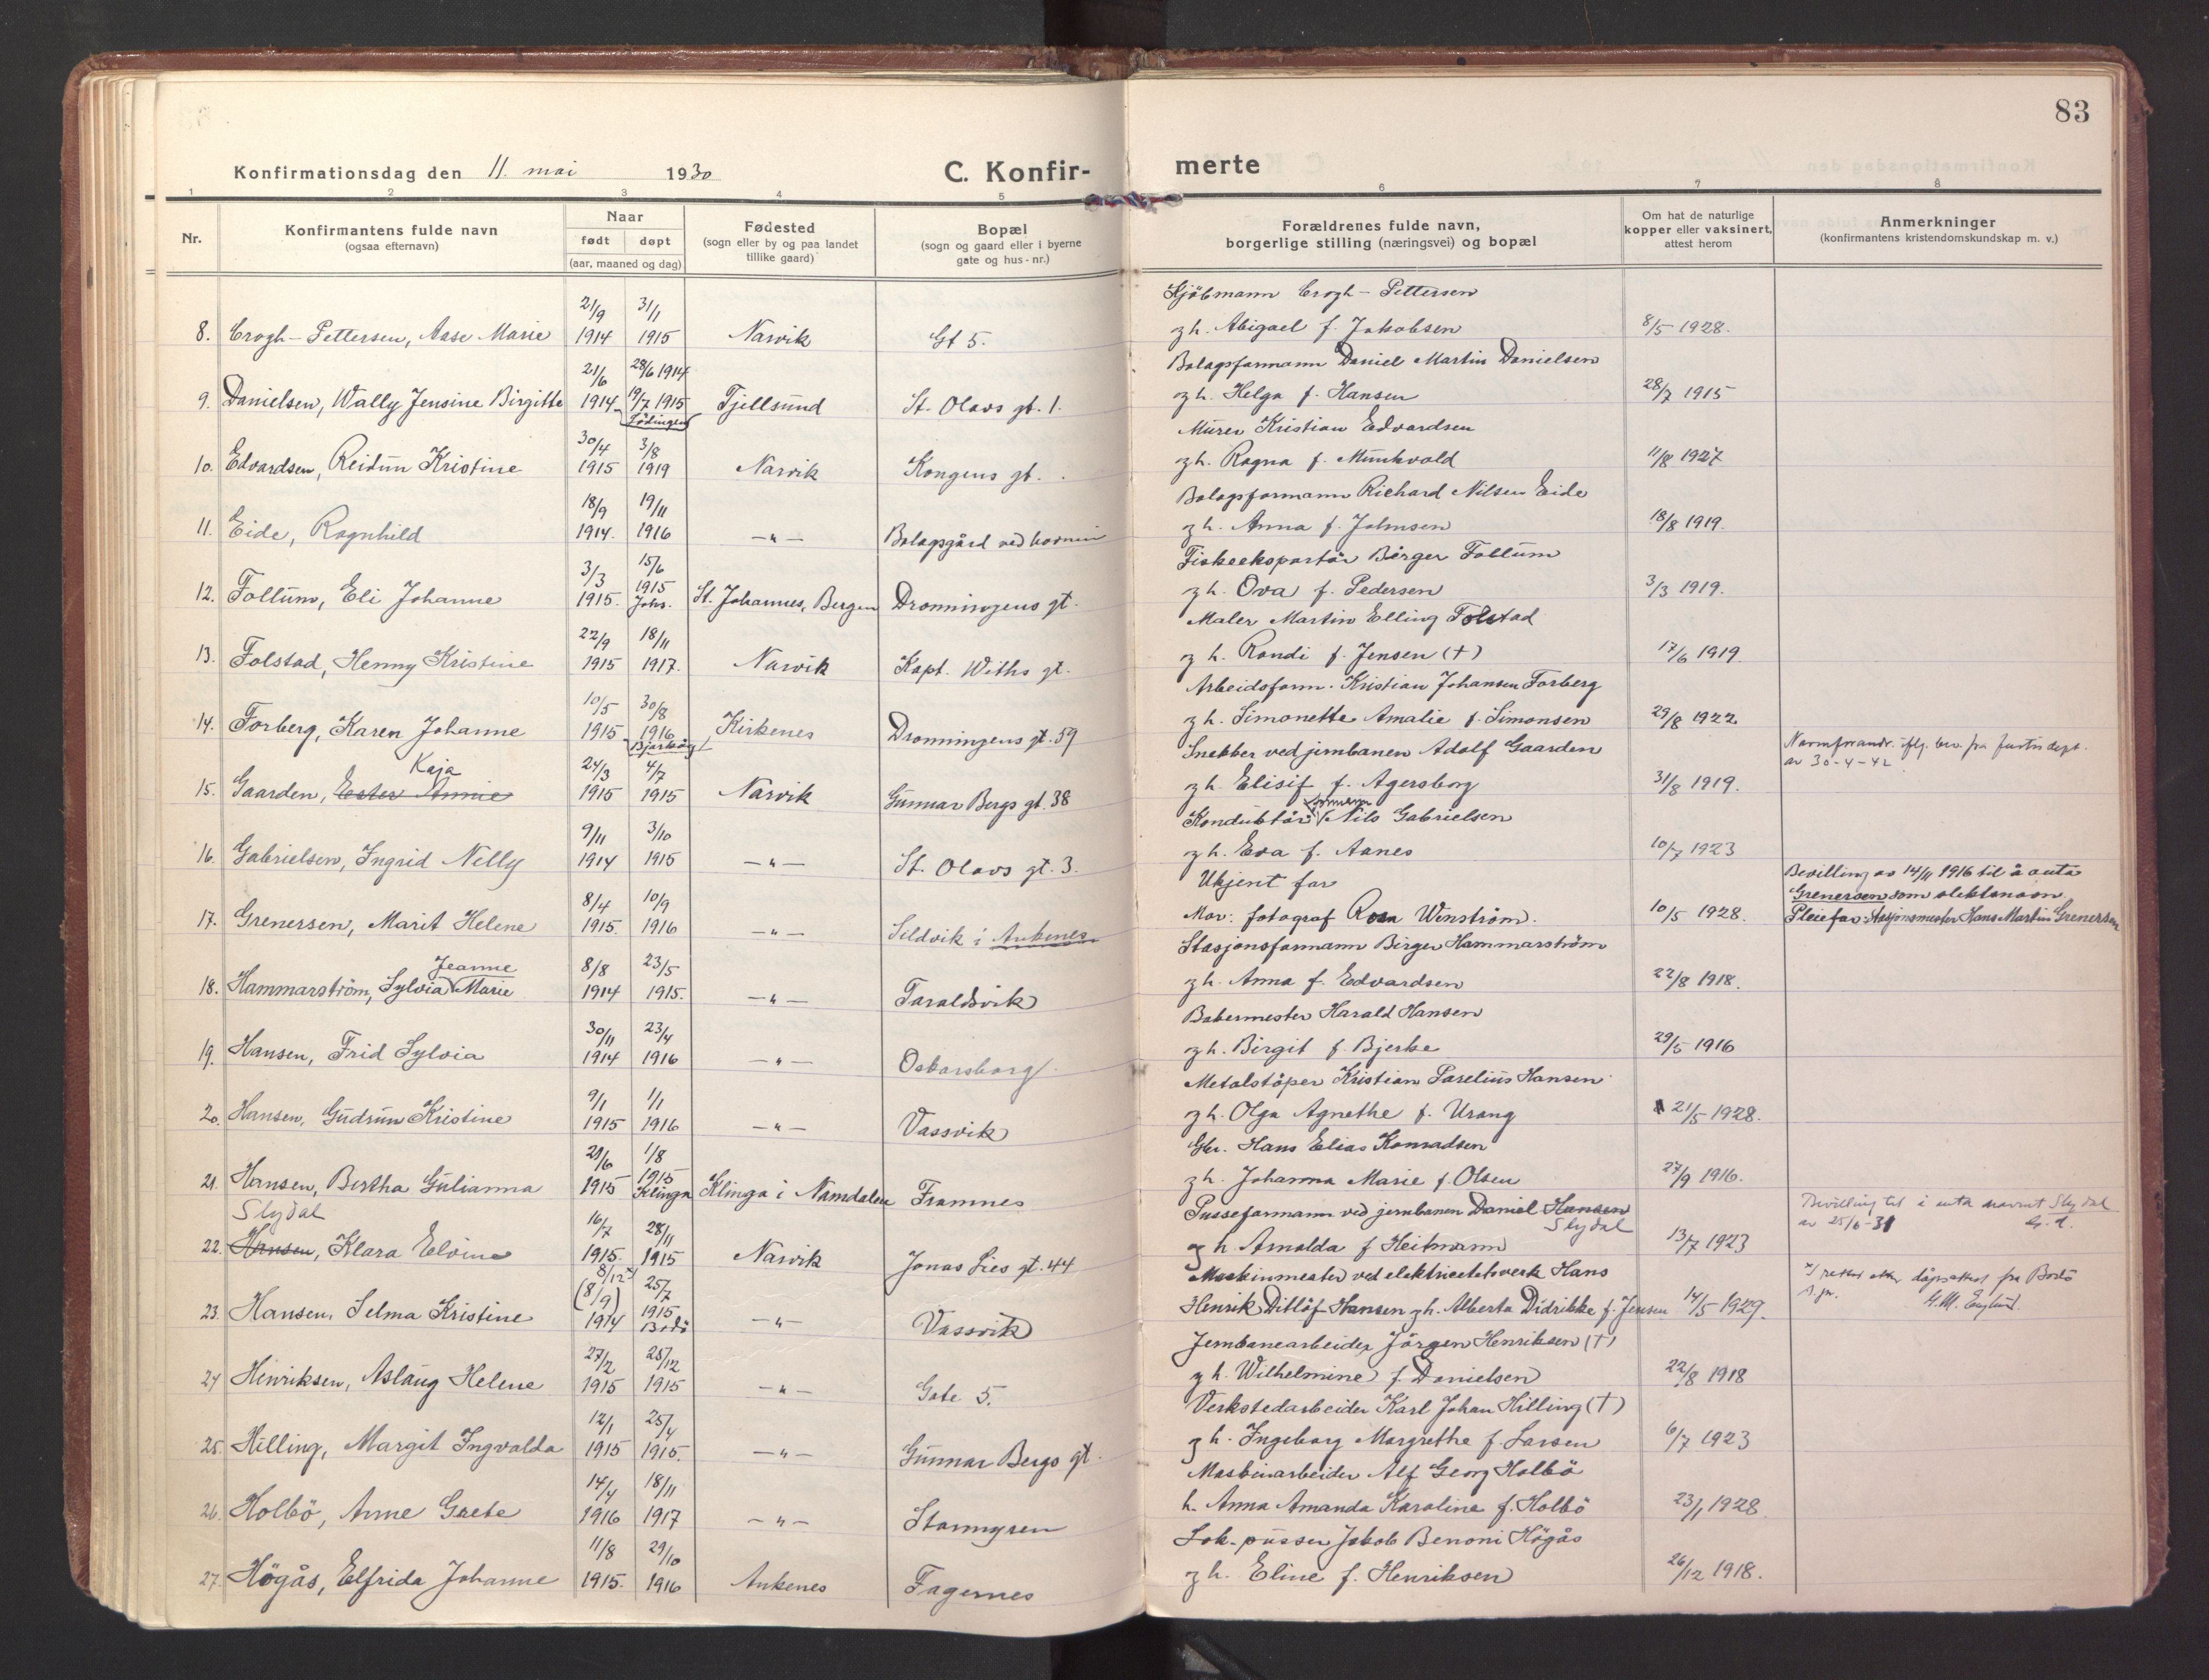 83
Konfirmationsdag den 11. mai 1930
C. Konfir-
merte
1 2 3 4 5 6 7 8
Nr.
Konfirmantens fulde navn
(ogsaa efternavn)
Naar
født døpt
(aar, maaned og dag)
Fødested
(sogn eller by og paa landet
tillike gaard)
Bopæl
(sogn og gaard eller i byerne
gate og hus-nr.)
Forældrenes fulde navn,
borgerlige stilling (næringsvei) og bopæl
Om hat de naturlige
kopper eller vaksinert,
attest herom
Anmerkninger
(konfirmantens kristendomskundskap m. v.)
21/9 31/1 Kjöbmann Crogh-Pettersen
8. Crogh-Pettersen, Aase Marie 1914 1915 Narvik Gt 5. og h. Abigael f. Jakobsen 8/5 1928.
21/6 28/6 1914 Bolagsformann Daniel Martin Danielsen
9. Danielsen, Wally Jensine Birgitte 1914 19/7 1915 Tjellsund St. Olavs gt. 1. og h. Helga f. Hansen 28/7 1915
Lödingen
30/4 3/8 Murer Kristian Edvardsen
10. Edvardsen, Reidun Kristine 1915 1919 Narvik Kongens gt. og h. Ragna f. Munkvold 11/8 1927
18/9 19/11 Bolagsformann Richard Nilsen Eide
11. Eide, Ragnhild 1914. 1916 —"— Bolagsgård ved havnen og h. Anna f. Johnsen 18/8 1919.
3/3 15/6 Fiskeeksportör Birger Follum
12. Follum, Eli Johanne 1915. 1915 Johs. St. Johannes, Bergen Dronningens gt. og h. Ova f. Pedersen 3/3 1919.
22/9 18/11 Maler Martin Elling Folstad
13. Folstad, Henny Kristine 1915 1917. Narvik Kapt. Withs gt. og h. Randi f. Jensen (†) 17/6 1919.
10/5 30/8 Arbeidsform. Kristian Johansen Forberg
14. Forberg, Karen Johanne 1915 1916 Kirkenes Dronningens gt. 59 og h. Simonette Amalie f. Simonsen 29/8 1922
Kaja 24/3 4/7 Snekker ved jernbanen Adolf Gaarden Navneforandr. iflg. bev. fra justisdept.
av 30-4-42
15. Gaarden, Ester Annie 1915 1915 Narvik Gunnar Bergs gt. 38 og h. Elisif f. Agersborg 31/8 1919.
9/11 3/10 Konduktör formann Nils Gabrielsen
16. Gabrielsen, Ingrid Nelly 1914 1915 —"— St. Olavs gt. 3. og h. Eva f. Aanes 10/7 1923
8/4 10/9 Ukjent far Bevilling av 14/11 1916 til å anta
Grenersen som slektsnavn
17. Grenersen, Marit Helene 1915. 1916 —"— Sildvik i Ankenes Mor: fotograf Rosa Winström. 10/5 1928. Pleiefar: stasjonsmester Hans Martin Grenersen
Jeanne 8/8 23/5 Stasjonsformann Birger Hammarström
18. Hammarström, Sylvia Marie 1914 1915. —"— Taraldsvik og h. Anna f. Edvardsen 22/8 1918.
30/11 23/4 Bakermester Harald Hansen
19. Hansen, Frid Sylvia 1914 1916 —"— Oskarsborg og h. Birgit f. Bjerke 29/5 1916
9/1 1/1 Metalstöper Kristian Parelius Hansen
20. Hansen, Gudrun Kristine 1915 1916 —"— Vassvik og h. Olga Agnethe f. Urang 21/5 1928.
29/6 1/8 Gbr. Hans Elias Konradsen
21. Hansen, Bertha Gulianna 1915 1915 Klinga Klinga i Namdalen Framnes og h. Johanna Marie f. Olsen 27/9 1916.
Slydal 16/7 28/11 Pusseformann ved jernbanen Daniel Hansen Slydal Bevilling til å anta navnet Slydal
av 25/6-31
22. Hansen, Klara Elvine 1915. 1915 Narvik Jonas Lies gt. 44 og h. Arnolda f. Heitmann 13/7 1923
8/12 x) (8/9) 25/7 Maskinmester ved elektricitetsverk Hans x) rettet etter dåpsattest fra Bodö
s.pr.
23. Hansen, Selma Kristine 1914 1915 Bodö —"— Vassvik Henrik Ditlöf Hansen og h. Alberta Didrikke f. Jensen 14/5 1929.
27/2 25/12 Jernbanearbeider Jörgen Henriksen (†)
24 Hinriksen, Aslaug Helene 1915 1915 —"— Gate 5. og h. Wilhelmine f. Danielsen 22/8 1918
12/1 25/4 Verkstedarbeider Karl Johan Hilling (†)
25. Hilling, Margit Ingvalda 1915 1915. —"— Gunnar Bergs gt. og h. Ingeborg Margrethe f. Larsen 6/7 1923
14/4 18/11 Maskinarbeider Alf Georg Holbö
26. Holbö, Anne Grete 1916 1917 —"— h. Anna Amanda Karoline f. Holbö 23/1 1928
11/8 29/10 Lok-pusser Jakob Benoni Högås
27. Högås, Elfrida Johanne 1915. 1916 Ankenes Fagernes og h. Eline f. Henriksen 26/12 1918.